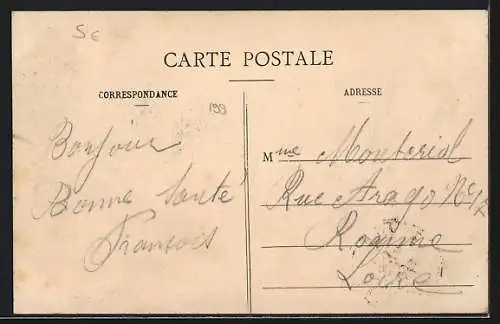 5c
CARTE POSTALE
CORRESPONDANCE
199
ADRESSE
Bonjour
Bonne Santé
Fransois
Mme Monteriol
Rue Arago No 12
Roanne
Loire